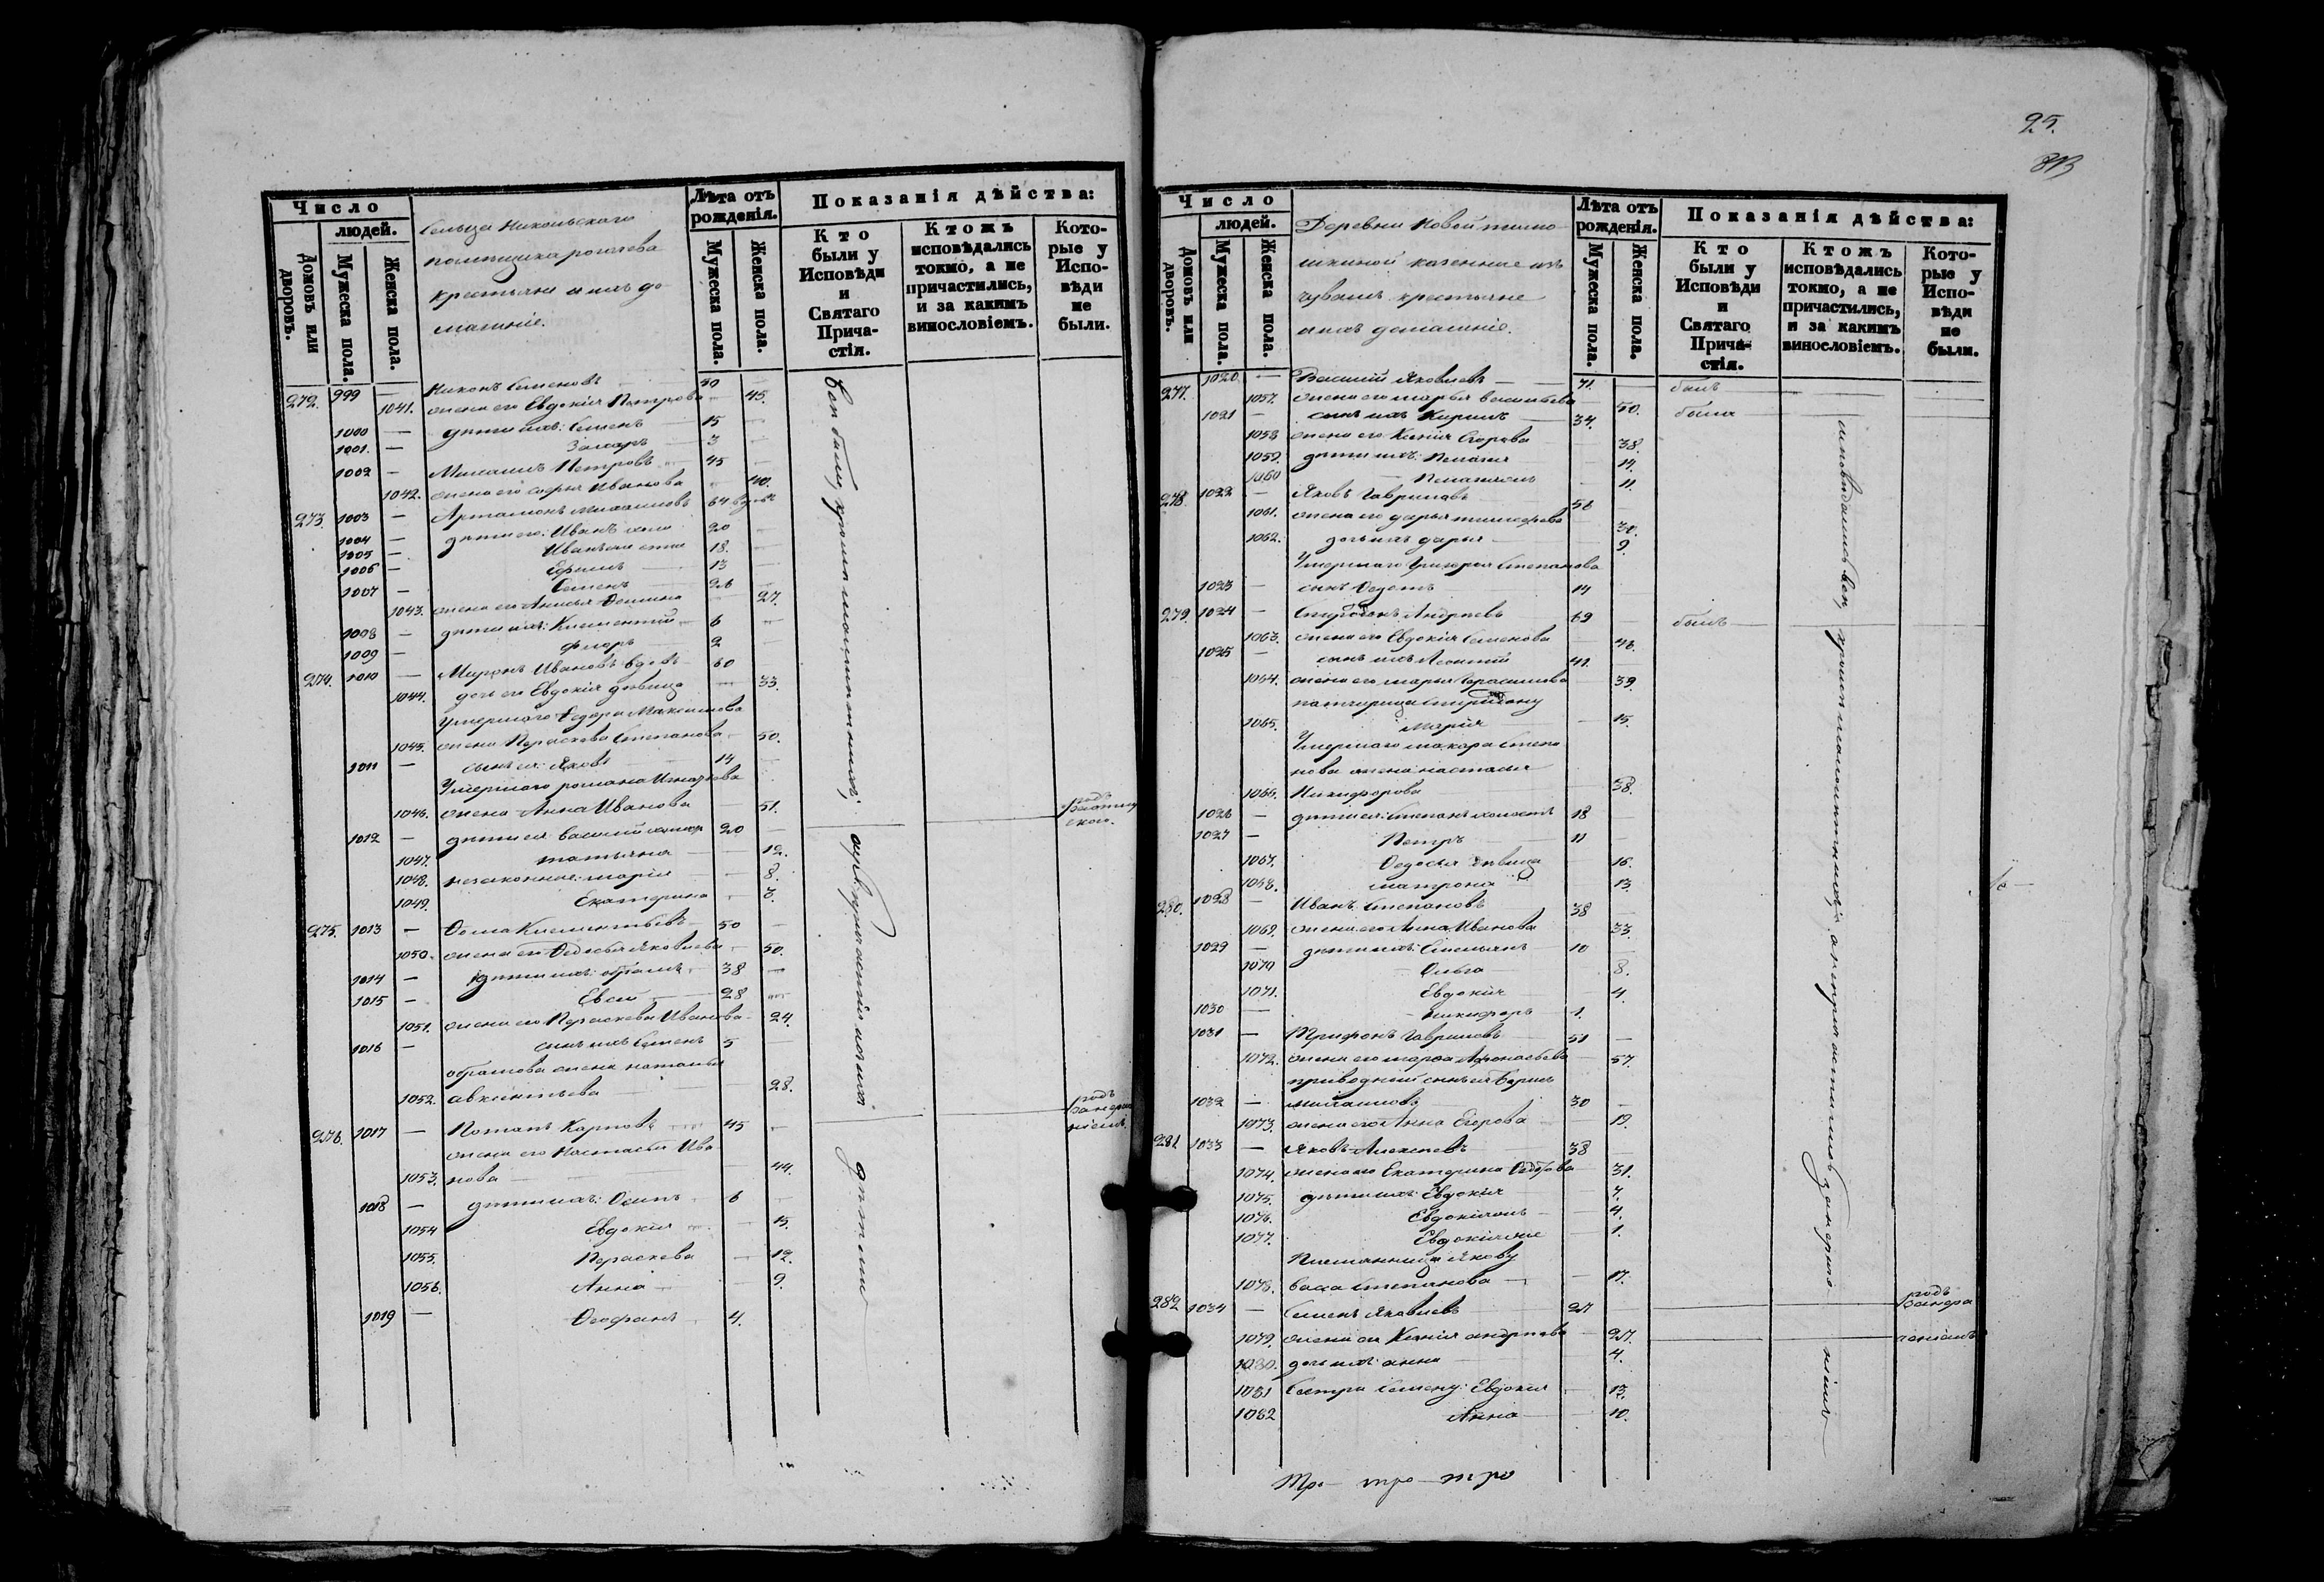 Число
людей.
Домовъ или дворовъ.
Мужеска пола.
Женска пола.
Сельца Никольскаго
помещика рогачева
крестьяне и ихъ до
машніе.
Лѣта отъ рожденія.
Мужеска пола.
Женска пола.
Показанія дѣйства:
Кто были у Исповѣди и Святаго Причастія.
Ктожъ исповѣдались токмо, а не причастились, и за какимъ винословіемъ.
Которые у Исповѣди не были.
272. 999 — Никонъ Семеновъ 50 —
1041. жена его Евдокія Петрова 45.
1000 — дѣти ихъ: Семенъ 15 —
1001. — Захаръ 3 —
1002 — Михаилъ Петровъ 45 —
1042. жена его Иванова 40.
273 1003 — Артамонъ Михаиловъ 64 вдовъ
1004 — дѣти его: Иванъ 20 —
1005 — Иванъ 18. —
1006 — Ефимъ 13 —
1007 — Семенъ 26 —
1043. жена его Анисья Фомина 27.
1008 — дѣти ихъ: Климентій 6
1009 — Флоръ 2
274. 1010 — Миронъ Ивановъ вдовъ 60
1044. дочь его Евдокія дѣвица 33.
Умершаго Федора Максимова
1045. жена Параскева Степанова 50.
1011 — сынъ ея: Яковъ 14
Умершаго романа Игнатьева
1046. жена Анна Иванова 51.
1012 — дѣти ея Василий 20 —
1047. татьяна 12.
1048. незаконные: марія 8.
1049. Екатерина 3.
275. 1013 — Фома Климентьевъ 50 —
1050. жена его Федосья Яковлева 50.
1014 — дѣти ихъ: 38 —
1015 — Евсей 28
1051. жена его Параскева Иванова 24.
1016 — сынъ ихъ Семенъ 5
жена наталья
1052. авксентьева 28.
276. 1017 — Потапъ Карповъ 45
жена его Настасья Ива
1053. нова 44.
1018 — дѣти ихъ: Осипъ 6
1054 Евдокія 15.
1055. Параскева 12.
1056. Анна 9.
1019 — Феофанъ 4.
95.
Число
людей.
Домовъ или дворовъ.
Мужеска пола.
Женска пола.
Деревни Новой тимо
шкиной казенные изъ
чувашъ крестьяне
и ихъ домашніе.
Лѣта отъ рожденія.
Мужеска пола.
Женска пола.
Показанія дѣйства:
Кто были у Исповѣди и Святаго Причастія.
Ктожъ исповѣдались токмо, а не причастились, и за какимъ винословіемъ.
Которые у Исповѣди не были.
277. 1020. — Василий Яковлевъ 71. — былъ
1057. жена его марья васильева 50. была
1021 — сынъ ихъ Кирилъ 34.
1058 жена его Ксенія Егорова 38.
1059. дѣти ихъ: Пелагея 14.
1060 Пелагея 11.
278 1022 — Яковъ Гавриловъ 56
1061. жена его дарья тимофеева 30.
1062. дочь ихъ дарья 9.
Умершаго Григорья Степанова
1023 — сынъ Федотъ 14
279. 1024 — Спиридонъ Андреевъ 69 былъ
1063. жена его Евдокія Семенова 46.
1025 — сынъ ихъ Леонтій 41.
1064. жена его марья Герасимова 39.
патчерица Спиридону
1065. Марія 15.
Умершаго макара Степа
нова жена настасья
1066. Никифорова 38.
1026 — дѣти ея: Степанъ холостъ 18
1027 — Петръ 11
1067. Федосья дѣвица 16.
1068. матрона 13.
280. 1028 — Иванъ Степановъ 38
1069. жена его Анна Иванова 33.
1029 — дѣти ихъ: Емельянъ 10
1070 Ольга 8.
1071. Евдокія 4.
1030 — Никифоръ 1.
1031 — Трифонъ Гавриловъ 51 —
1072. жена его марфа Афонасьева 57.
приводный сынъ ея Борисъ
1032 — михаиловъ 30
1073. жена его Анна Егорова 19.
281 1033 — Яковъ Алексеевъ 38
1074. жена его Екатерина Федорова 31.
1075. дѣти ихъ: Евдокія 7.
1076. Евдокія 4.
1077. Евдокія 1.
Племянница Якову
1078. васа Степанова 17.
282 1034 — Семенъ Яковлевъ 27
1079. жена его Ксенія андреева 27.
1080. дочь ихъ: анна 4.
1081 Сестри Семену: Евдокія 13.
1082 Анна 10.